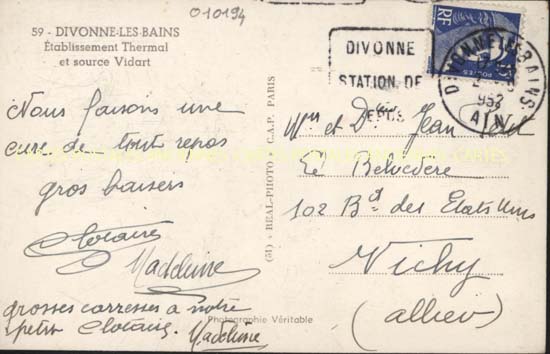 010194
59 - DIVONNE-LES-BAINS
Établissement Thermal
et source Vidart
Nous faisons une
cure de tout repos
gros baisers
Clotaire
Madeleine
grosses carresses à notre
petit Clotaire. Madeleine
(51) - REAL-PHOTO - C.A.P. PARIS
Photographie Véritable
DIVONNE
STATION DE
REPOS
RF
POSTES
DIVONNE-LES-BAINS
AIN
et Jean
Le Belvédère
102 Bd des Etats Unis
Vichy
(allier)